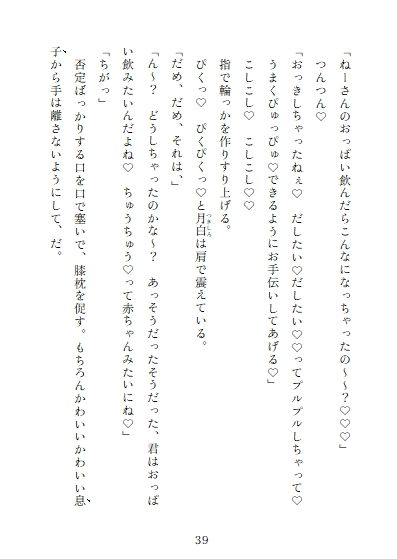 「ねーさんのおっぱい飲んだらこんなになっちゃったの～～？♡♡♡」
つんつん♡
「おっきしちゃったねぇ♡　だしたい♡だしたい♡♡ってプルプルしちゃって♡
うまくぴゅっぴゅ♡できるようにお手伝いしてあげる♡」
こしこし♡　こしこし♡♡
指で輪っかを作りすり上げる。
ぴくっ♡　ぴくぴくっ♡と月白は肩で震えている。
つきしろ
「だめ、だめ、それは、」
「ん～？　どうしちゃったのかな～？　あっそうだったそうだった、君はおっぱ
い飲みたいんだよね♡　ちゅうちゅう♡って赤ちゃんみたいにね♡」
「ちがっ」
否定ばっかりする口を口で塞いで、膝枕を促す。もちろんかわいいかわいい息
子から手は離さないようにして、だ。
39